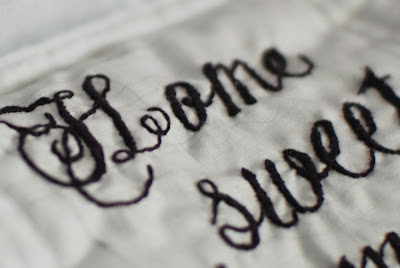 Home
sweet